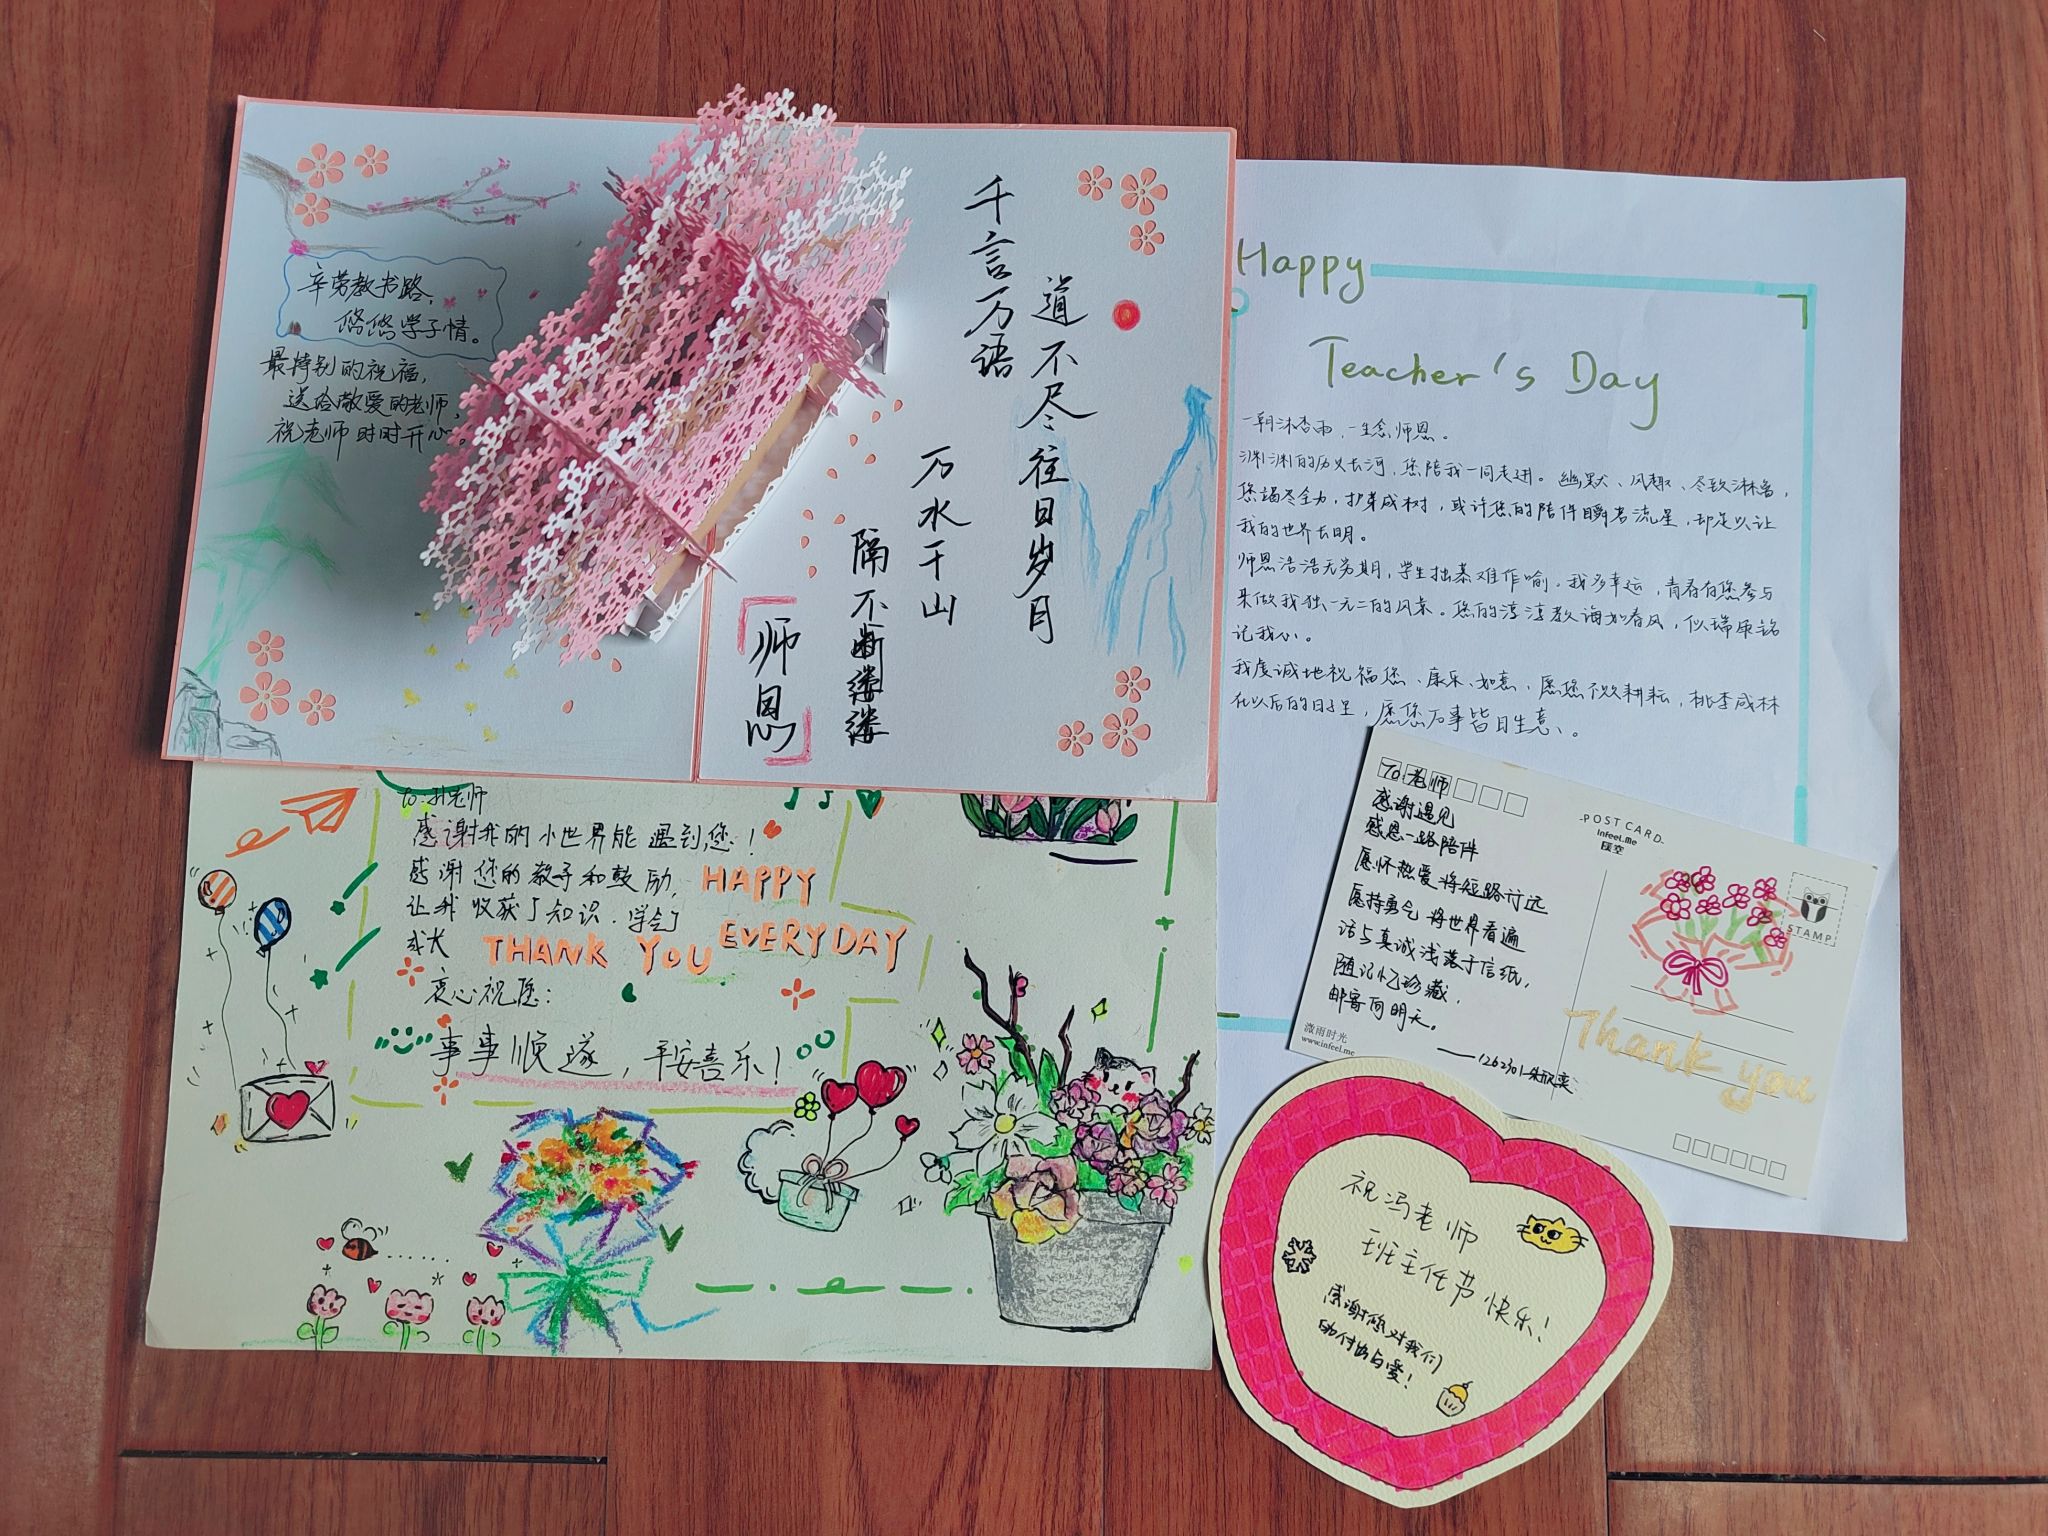 辛劳教书路，
悠悠学子情。
最特别的祝福，
送给敬爱的老师，
祝老师时时开心。
千言万语
道不尽往日岁月
万水千山
隔不断缕缕
师恩
Happy
Teacher's Day
一朝沐杏雨，一生念师恩。
渊渊的历史长河，您陪我一同走进。幽默、风趣、尽致淋漓，
您竭尽全力，护芽成树，或许您的陪伴瞬若流星，却足以让
我的世界长明。
师恩浩浩无穷期，学生拙慕难作喻。我多幸运，青春有您参与
来做我独一无二的风景。您的淳淳教诲如春风，似瑞
记我心。
我虔诚地祝福您、康乐、如意、愿您不欠耕耘，桃李成林
在以后的日子里，愿您万事皆目生意、。
To:孙老师
感谢我的小世界能遇到您！
感谢您的教导和鼓励，
让我收获了知识.学会了
成长
HAPPY
EVERYDAY
THANK YOU
衷心祝愿：
事事顺遂，平安喜乐！
To老师
感谢遇见
感恩一路陪伴
愿怀热爱将短路行远
愿持勇气将世界看遍
话与真诚浅落于信纸，
随记忆珍藏，
邮寄向明天。
——1262301
POST CARD
Infeel.Me
STAMP
Thank you
微雨时光
www.infeel.me
祝冯老师
班主任节快乐！
感谢您对我们
的付出与爱！